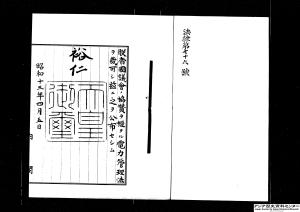 法律第七十八號
朕帝國議會ノ協賛ヲ經タル電力管理法
ヲ裁可シ茲ニ之ヲ公布セシム
裕仁
天皇
御璽
昭和十三年四月五日
内閣
アジア歴史資料センター